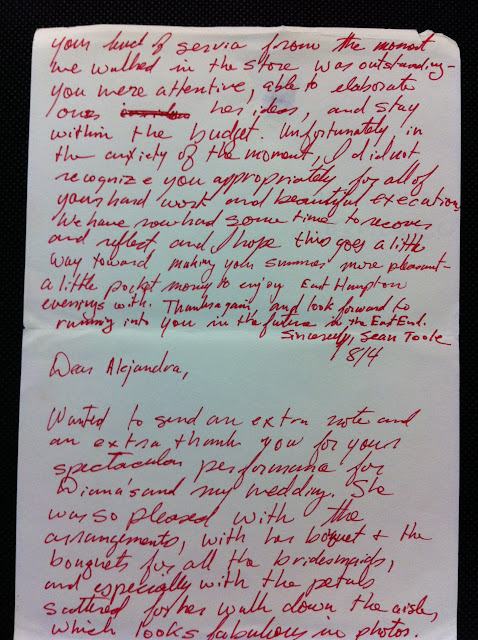 your kind of service from the moment
we walked in the store was outstanding –
you were attentive, able to elaborate
her ideas, and stay
within the budget. Unfortunately, in
the anxiety of the moment, I did not
recognize you appropriately for all of
your hard work and beautiful execution.
We have now had some time to recover
and reflect and I hope this goes a little
way toward making your summer more pleasant –
a little pocket money to enjoy East Hampton
evenings with. Thanks again, and look forward to
running into you in the future in the East End.
Sincerely, Sean Toole
8/4
Dear Alejandra,
Wanted to send an extra note and
an extra thank you for your
spectacular performance for
Diana's and my wedding. She
was so pleased with the
arrangements, with her boquet + the
bouquets for all the bridesmaids,
and especially with the petals
scattered for her walk down the aisle,
which looks fabulous in photos.